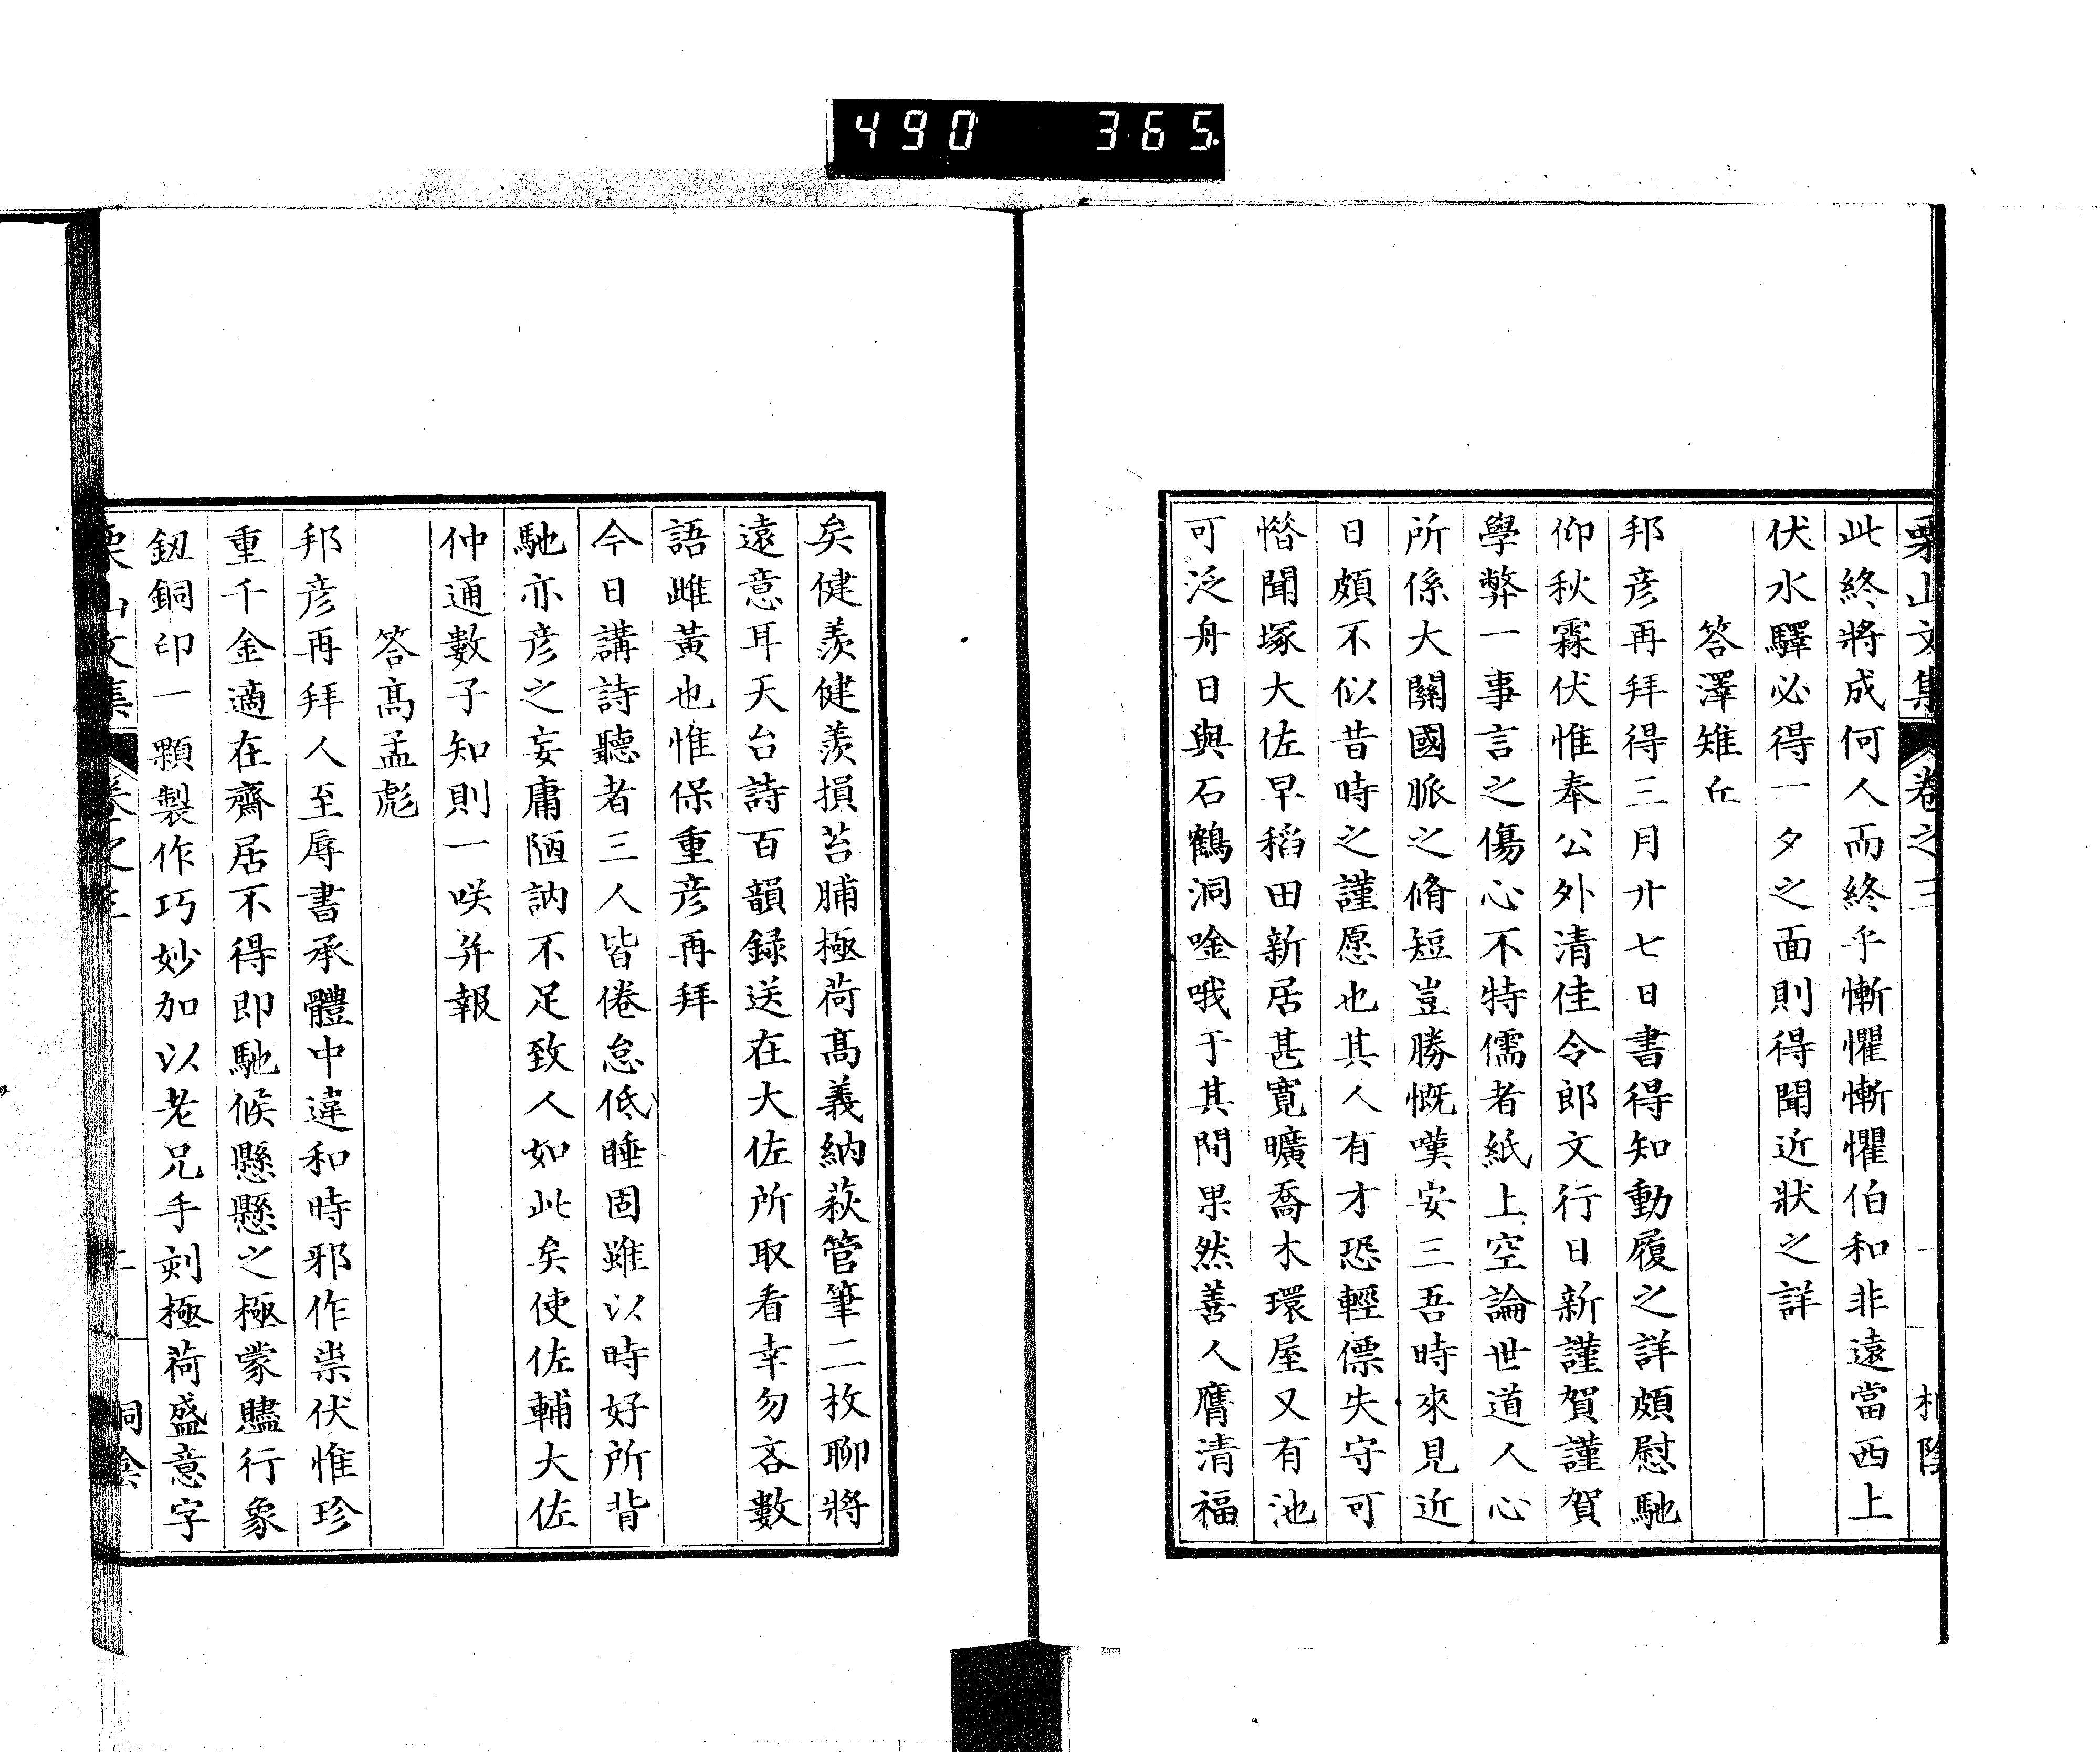 490 365.
栗山文集 卷之三
此終將成何人而終乎慚懼慚懼伯和非遠當西上
伏水驛必得一夕之面則得聞近狀之詳
答澤雉丘
邦彦再拜得三月廾七日書得知動履之詳頗慰馳
仰秋霖伏惟奉公外清佳令郎文行日新謹賀謹賀
學弊一事言之傷心不特儒者紙上空論世道人心
所係大關國脈之脩短豈勝慨嘆安三吾時來見近
日頗不似昔時之謹愿也其人有才恐輕僄失守可
憯聞塚大佐早稻田新居甚寛曠喬木環屋又有池
可泛舟日與石鶴洞唫哦于其間果然善人膺清福
矣健羨健羨損苔脯極荷髙義納萩管筆二枚聊將
遠意耳天台詩百韻録送在大佐所取看幸勿吝數
語雌黃也惟保重彦再拜
今日講詩聽者三人皆倦怠低睡固雖以時好所背
馳亦彦之妄庸陋訥不足致人如此矣使佐輔大佐
仲通數子知則一咲并報
答髙孟彪
邦彦再拜人至辱書承體中違和時邪作祟伏惟珍
重千金適在齋居不得即馳候懸懸之極蒙贐行象
鈕銅印一顆製作巧妙加以老兄手刻極荷盛意字
栗山文集 卷之三